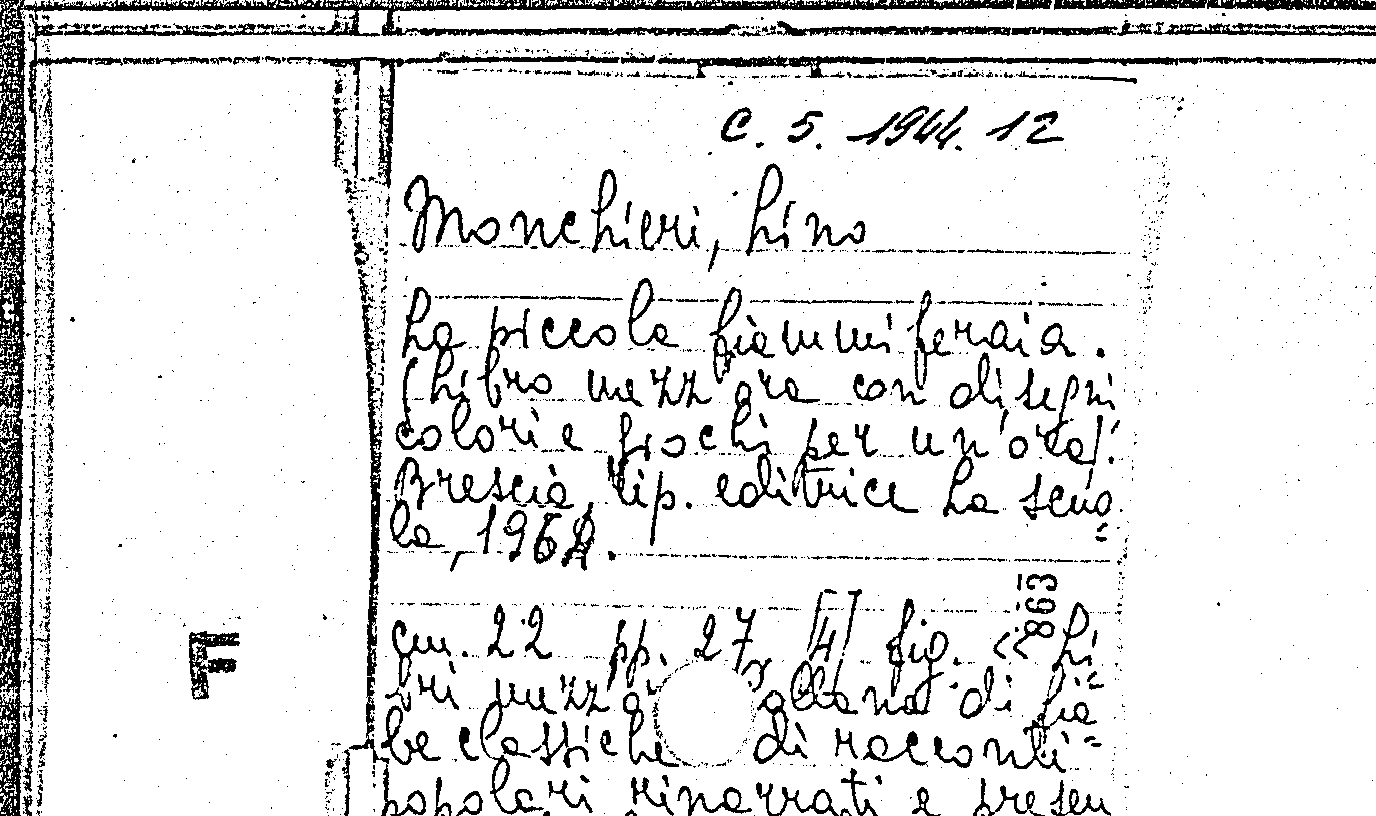 C. 5. 1944. 12
Monchieri, Lino
La piccola fiammiferaia.
(Libro mezz'ora con disegni
colori e giochi per un'ora).
Brescia, tip. editrice La scuo=
la, 1962.
863
cm. 22 pp. 27, [4] fig. << Li=
bri mezz'o allana di fia=
be classiche di racconti
popolari rinarrati e presen
F